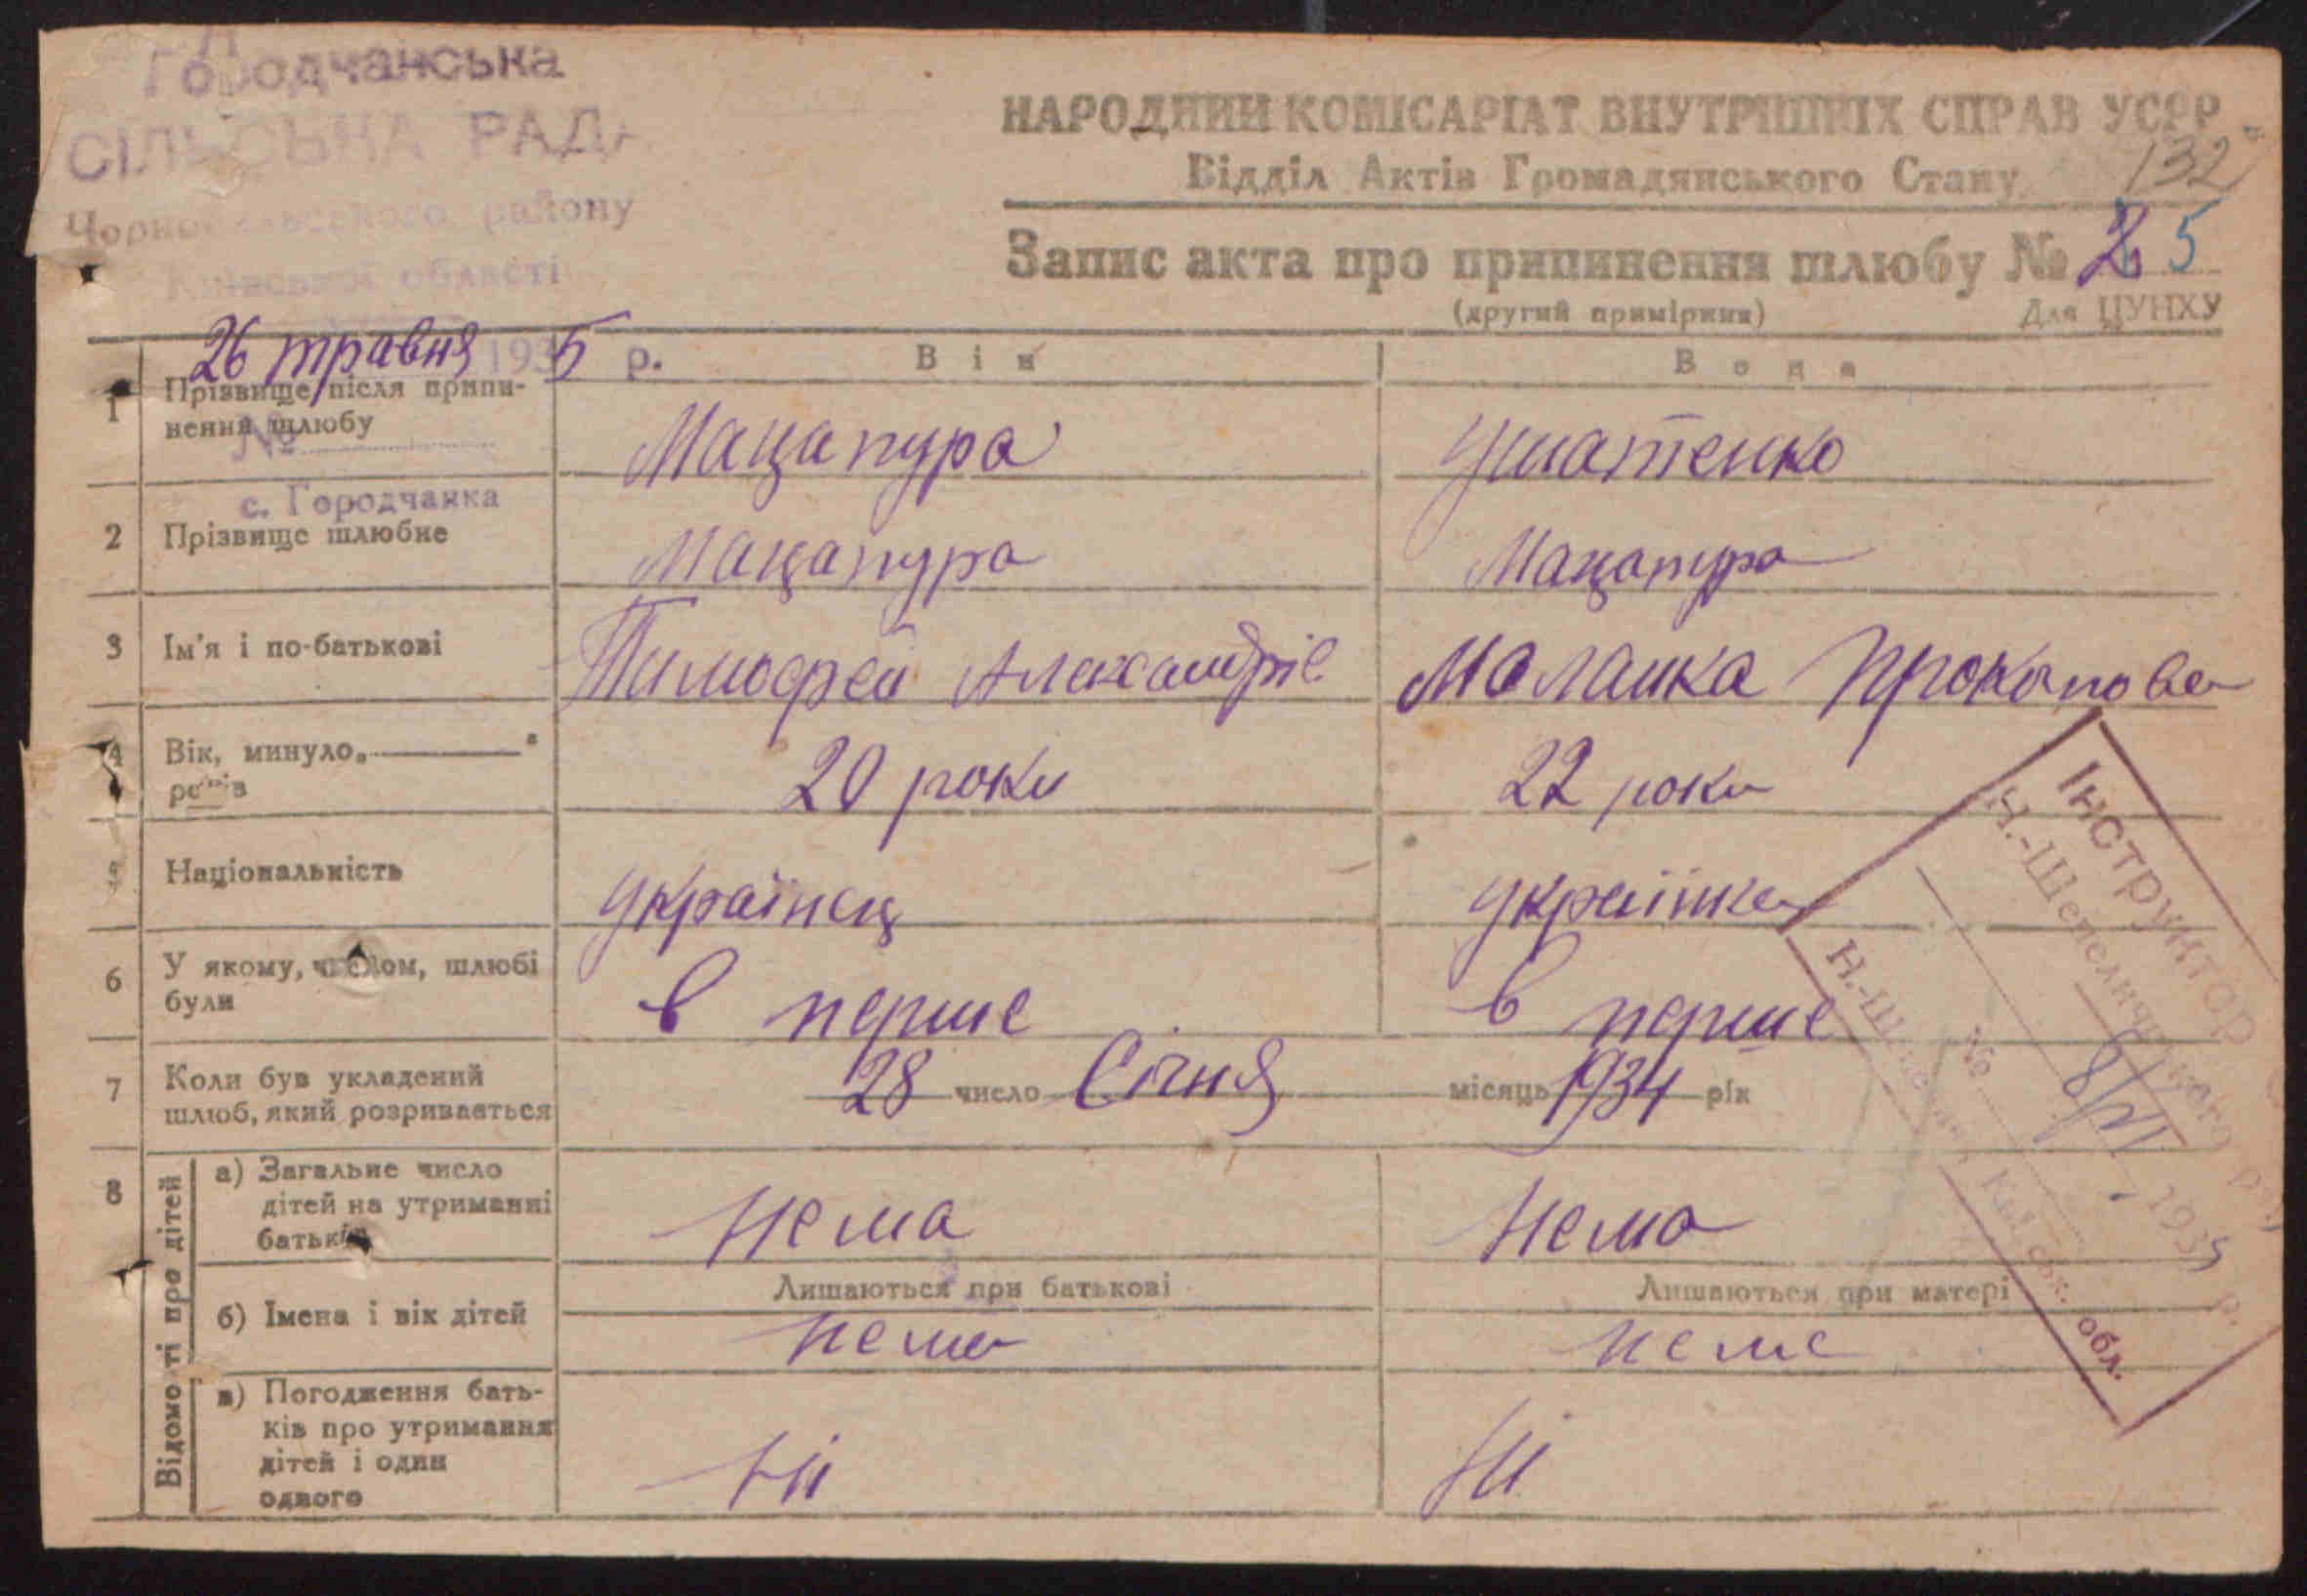 Городчанська
СІЛЬСЬКА РАДА
району
Київської області
26 травня 1935 р.
№
с. Городчанка
НАРОДНИЙ КОМІСАРІАТ ВНУТРІШНІХ СПРАВ УСРР
132
Відділ Актів Громадянського Стану
Запис акта про припинення шлюбу № 25
(другий примірник) Для ЦУНХУ
Він Вона
1 Прізвище після припи-
нення шлюбу Мацапура Ушатенко
2 Прізвище шлюбне Мацапура Мацапура
3 Ім'я і по-батькові Тимофей Александріє Маланка Прокопова
4 Вік, минуло „ “
років 20 роки 22 роки
5 Національність українец українка
6 У якому, числом, шлюбі
були в перше в перше
7 Коли був укладений
шлюб, який розривається 28 число Січня місяць 1934 рік
8 Відомості про дітей
а) Загальне число
дітей на утриманні
батьків Нема Нема
Лишаються при батькові Лишаються при матері
б) Імена і вік дітей нема неме
в) Погодження бать-
ків про утримання
дітей і один
одного Ні Ні
Інструктор
Н.-Шепелицького р.
№
8/VI 1935 р.
Н.-Ш Київськ. обл.